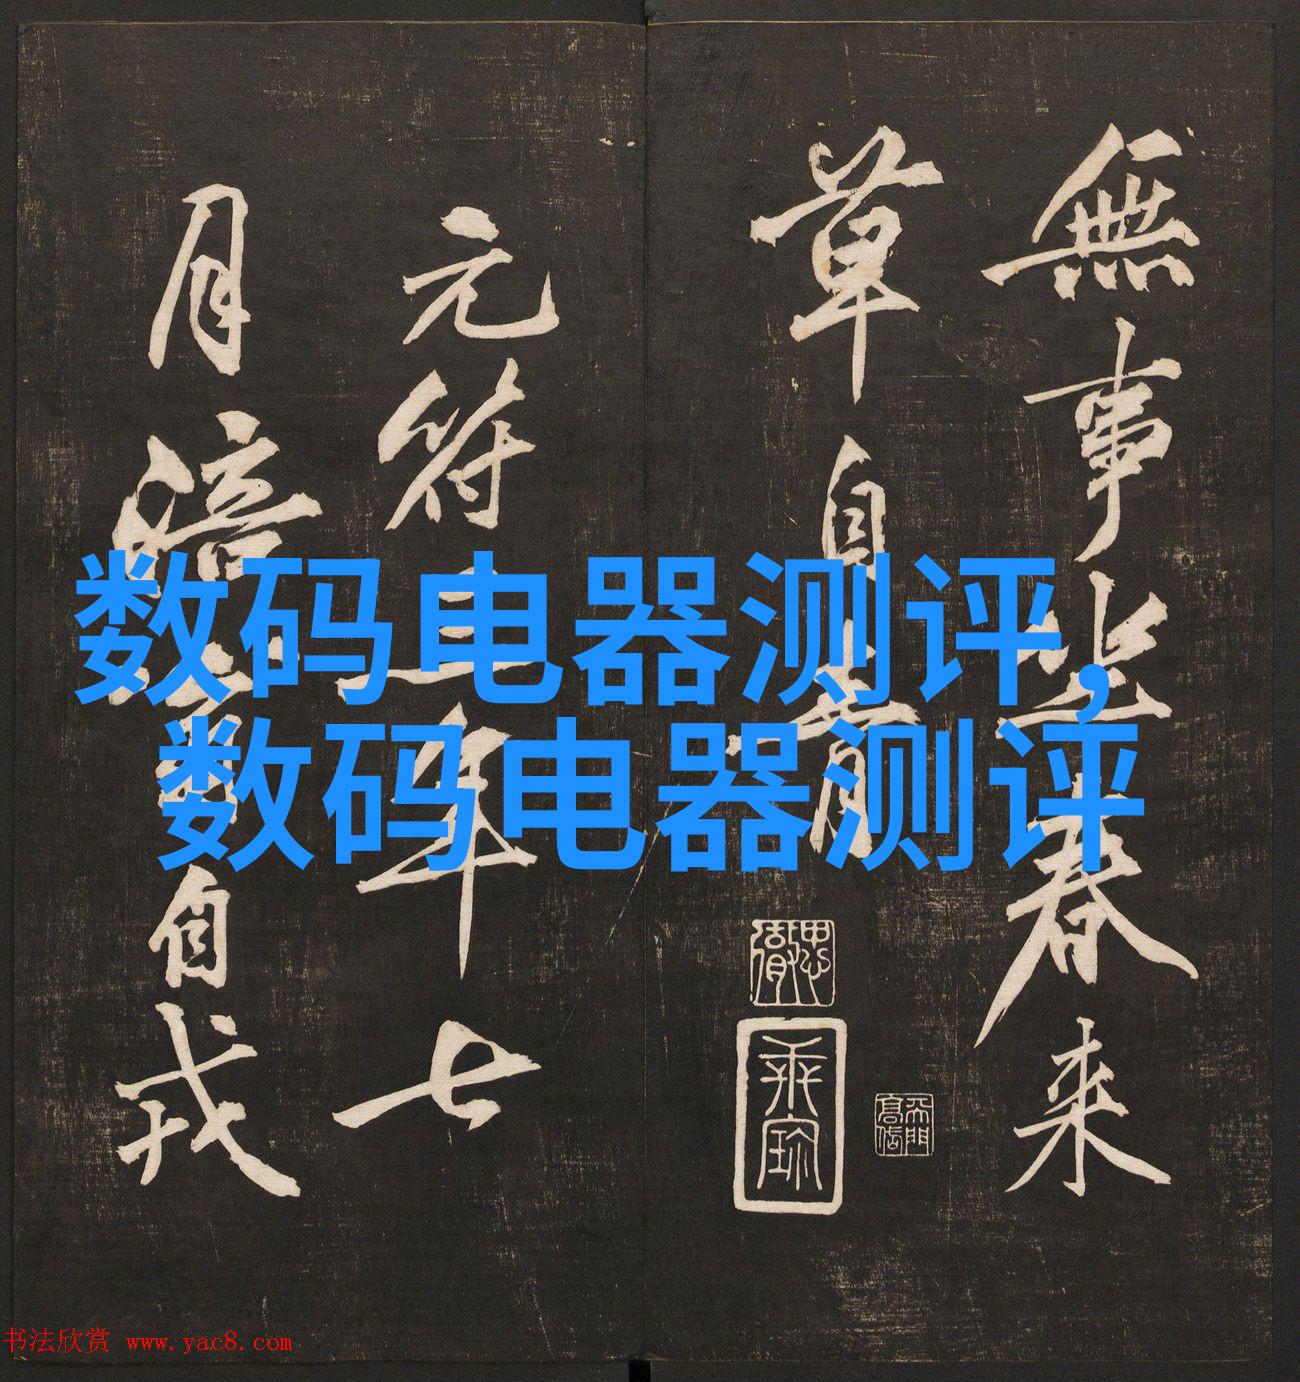 数码电器测评,
数码电器测评
無事坐春来
草自青
元符三年七
月涪翁自戎
书法欣赏 www.yac8.com